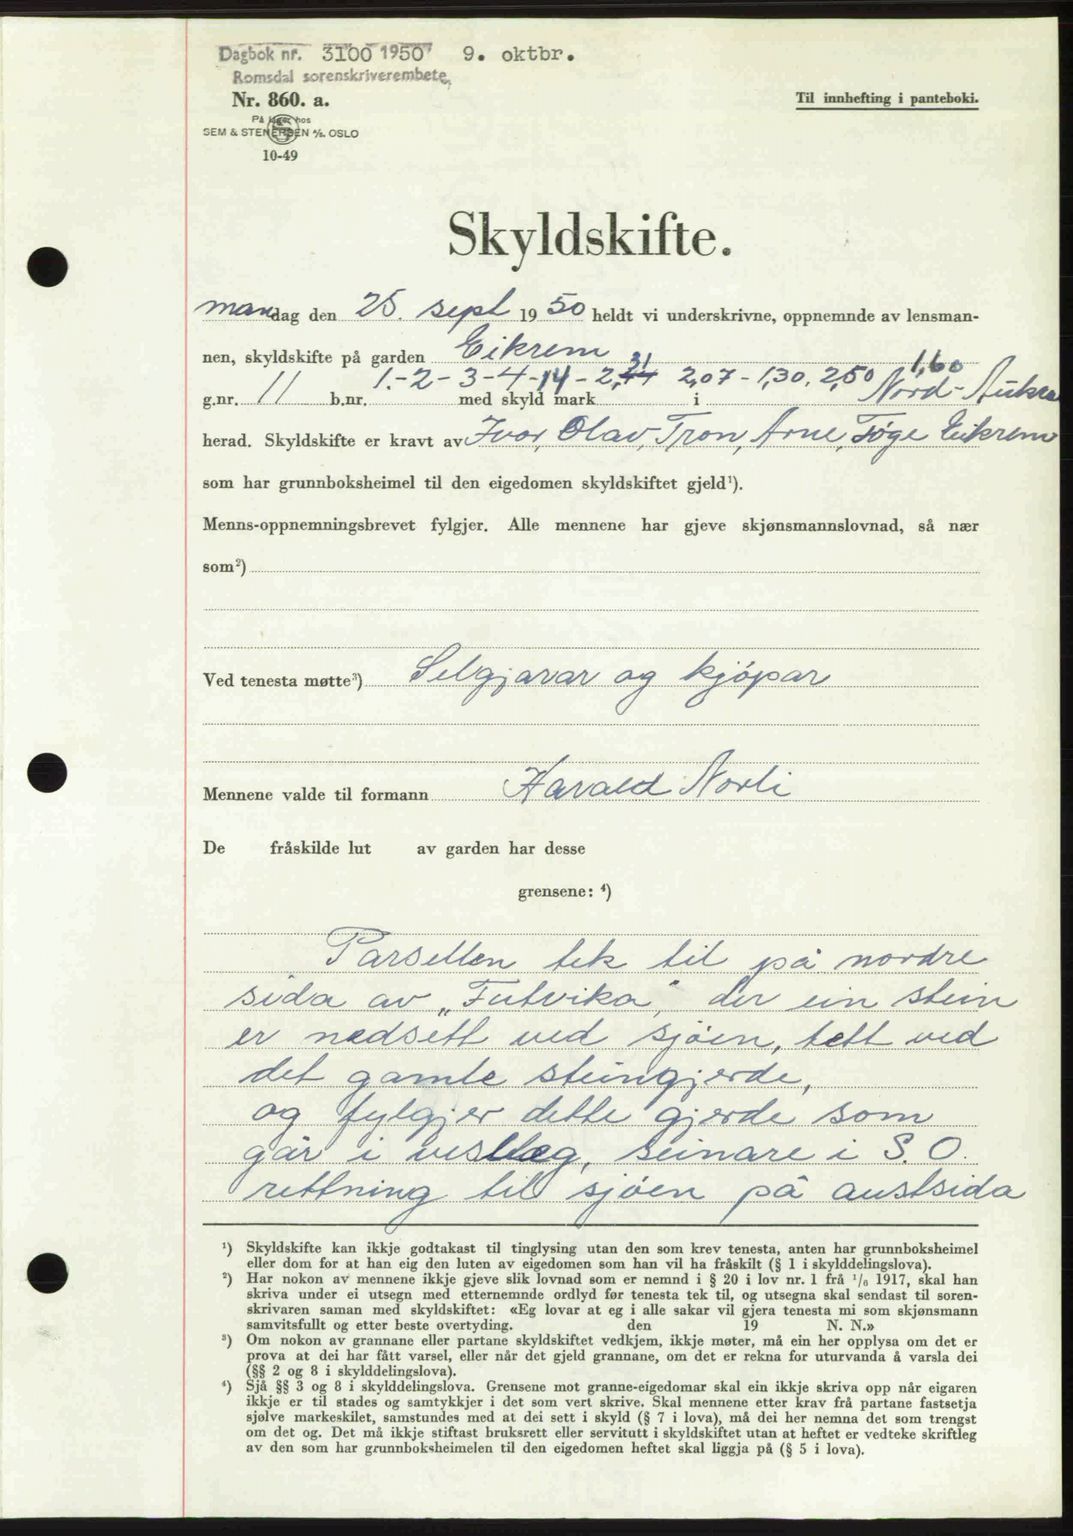 Dagbok nr. 3100 1950 9. oktbr.
Romsdal sorenskriverembete,
Nr. 860. a.
Til innhefting i panteboki.
På lager hos
SEM & STENERSEN A/S. OSLO
10-49
Skyldskifte.
mandag den 25. sept 1950 heldt vi underskrivne, oppnemnde av lensman-
nen, skyldskifte på garden Eikrem
g.nr. 11 b.nr. 1.-2-3-4-14 med skyld mark 2,31 2,07 - 1,30, 2,50 1,60 i Nord-Aukra
herad. Skyldskifte er kravt av Ivar, Olav, Tron, Arne, Tøge Eikrem
som har grunnboksheimel til den eigedomen skyldskiftet gjeld¹).
Menns-oppnemningsbrevet fylgjer. Alle mennene har gjeve skjønsmannslovnad, så nær
som²)
Ved tenesta møtte³) Selgjarar og kjöpar
Mennene valde til formann Harald Norli
De fråskilde lut av garden har desse
grensene: ⁴)
Parsellen tek til på nordre
sida av "Futvika", der ein stein
er nedsett ved sjöen, tett ved
det gamle steingjerde,
og fylgjer dette gjerde som
går i vestleg, seinare i S.O.
rettning til sjöen på austsida
¹) Skyldskifte kan ikkje godtakast til tinglysing utan den som krev tenesta, anten har grunnboksheimel
eller dom for at han eig den luten av eigedomen som han vil ha fråskilt (§ 1 i skylddelingslova).
²) Har nokon av mennene ikkje gjeve slik lovnad som er nemnd i § 20 i lov nr. 1 frå ¹/₆ 1917, skal han
skriva under ei utsegn med etternemnde ordlyd før tenesta tek til, og utsegna skal sendast til soren-
skrivaren saman med skyldskiftet: «Eg lovar at eg i alle sakar vil gjera tenesta mi som skjønsmann
samvitsfullt og etter beste overtyding. den 19 N. N.»
³) Om nokon av grannane eller partane skyldskiftet vedkjem, ikkje møter, må ein her opplysa om det er
prova at dei har fått varsel, eller når det gjeld grannane, om det er rekna for uturvanda å varsla dei
(§§ 2 og 8 i skylddelingslova).
⁴) Sjå §§ 3 og 8 i skylddelingslova. Grensene mot granne-eigedomar skal ein ikkje skriva opp når eigaren
ikkje er til stades og samtykkjer i det som vert skrive. Skal mennene etter krav frå partane fastsetja
sjølve markeskilet, samstundes med at dei sett i skyld (§ 7 i lova), må dei her nemna det som trengst
om det og. Det må ikkje stiftast bruksrett eller servitutt i skyldskiftet utan at heftet er vedteke skriftleg
av den som har grunnboksheimelen til den eigedomen heftet skal liggja på (§ 5 i lova).